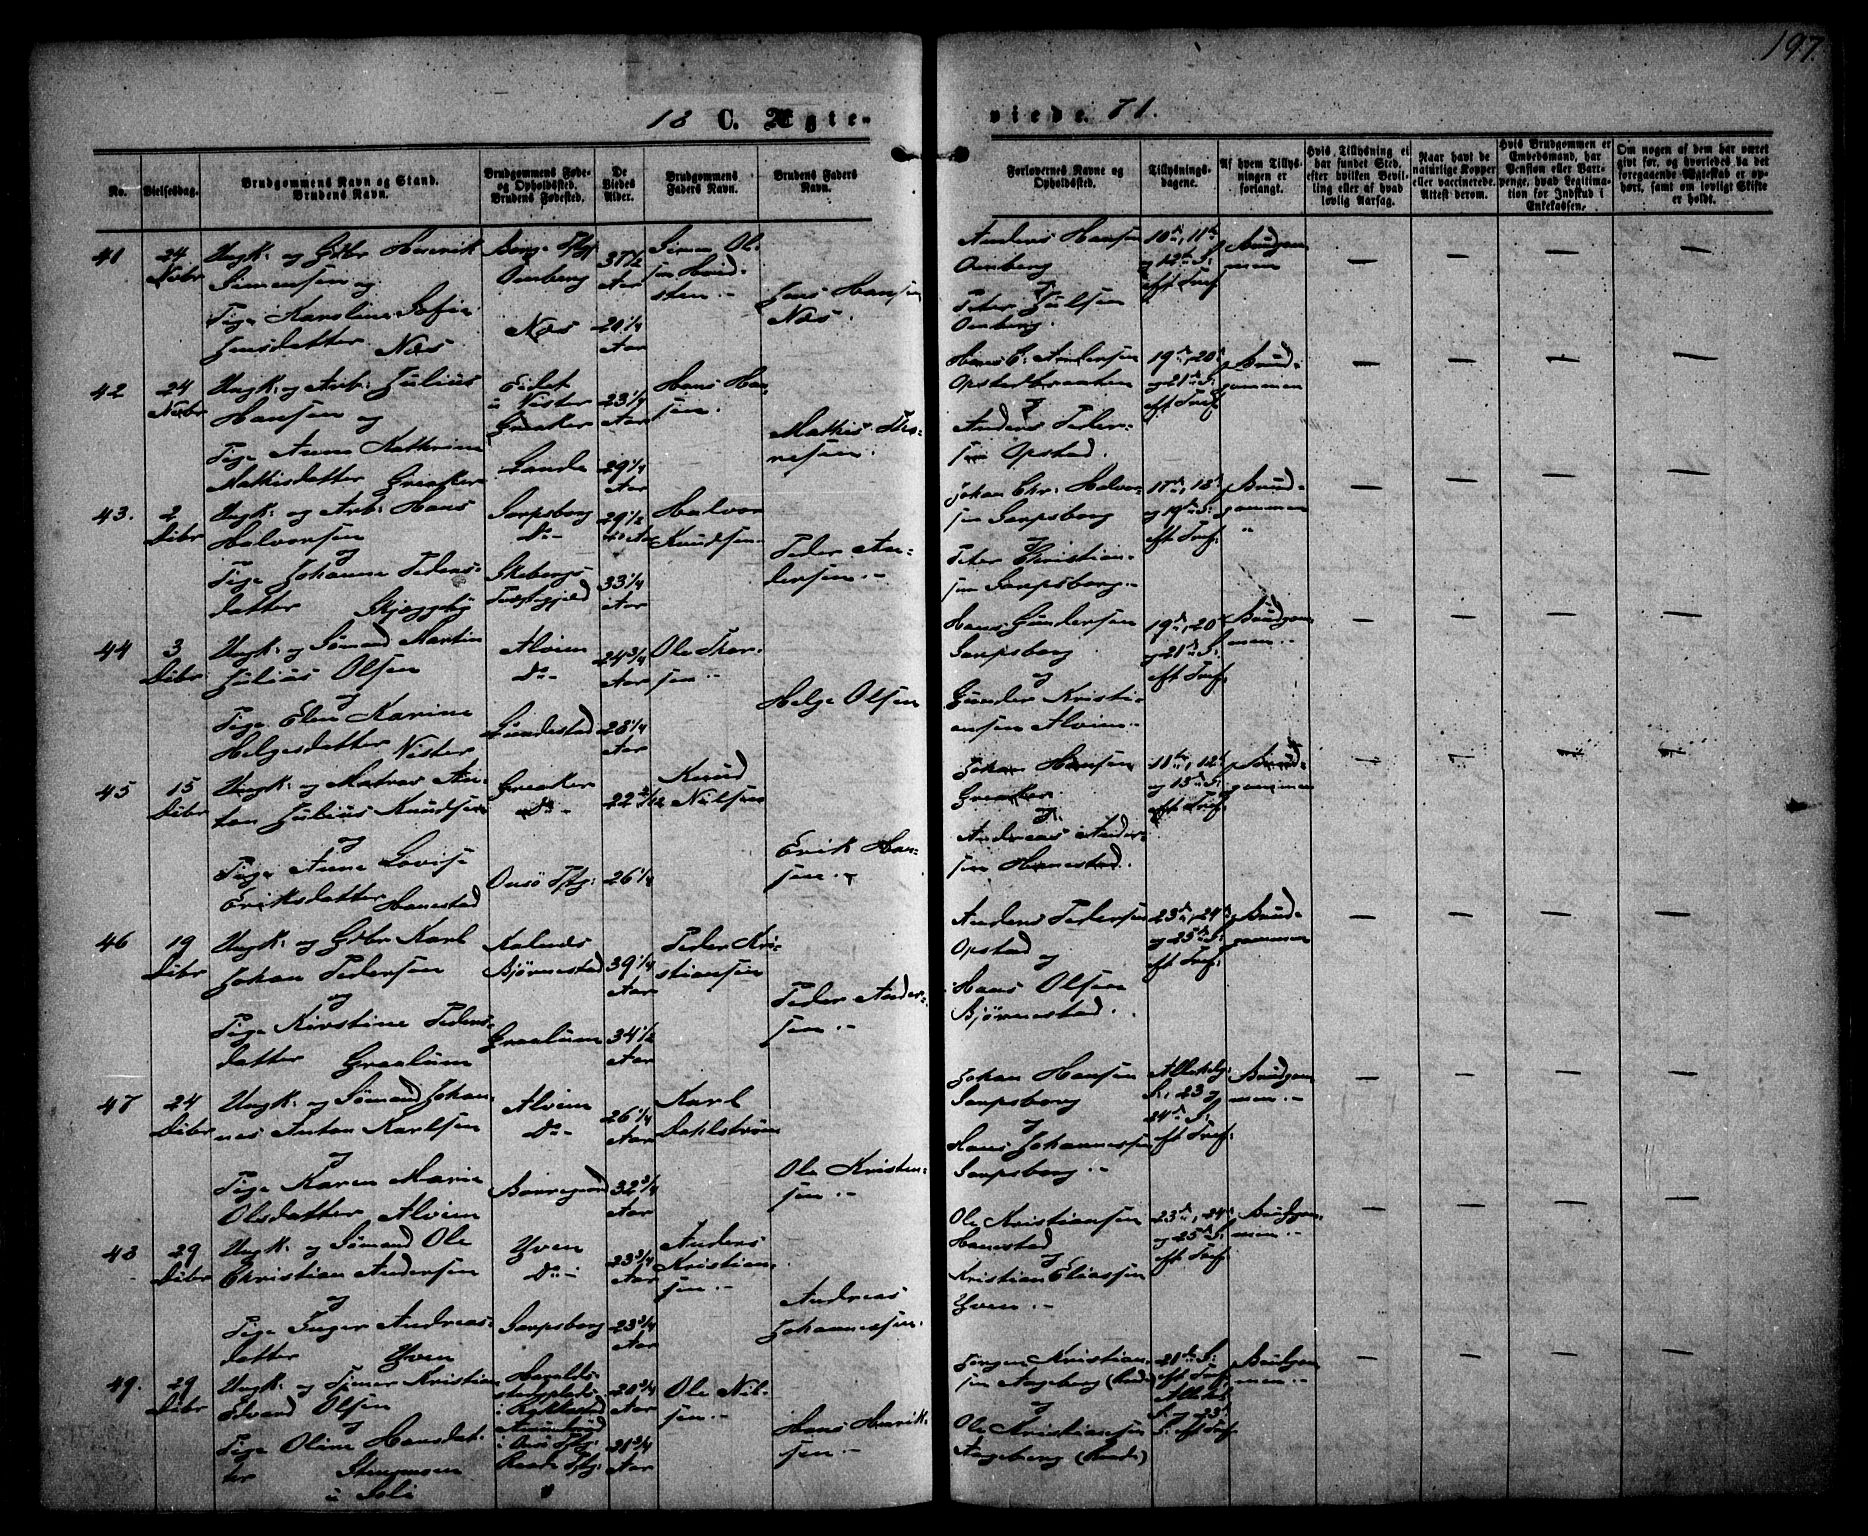 197.
18 C. Ægte-
viede. 71.
No.
Vielsesdag.
Brudgommens Navn og Stand.
Brudens Navn.
Brudgommens Føde-
og Opholdssted.
Brudens Fødested.
De
Viedes
Alder.
Brudgommens
Faders Navn.
Brudens Faders
Navn.
Forlovernes Navne og
Opholdssted.
Tillysnings-
dagene.
Af hvem Tillys-
ningen er
forlangt.
Hvis Tillysning ei
har fundet Sted,
efter hvilken Bevil-
ling eller af hvad
lovlig Aarsag.
Naar havt de
naturlige Kopper
eller vaccinerede.
Attest derom.
Hvis Brudgommen er
Embedsmand, har
Pension eller Var-
penge, hvad Legitima-
tion for Indskud i
Enkekassen.
Om nogen af dem har været
gift før, og hvorledes da det
foregaaende Ægteskab er op-
hørt, samt om lovligt Skifte
er holdt.
41
24
Novbr
Ungk: og Gbr Henrik
Simensen og
Pige Karoline Sofie
Jensdatter Næs
Borge Pstg:
Omberg
Næs
37 1/2
Aar
20 1/4
Aar
Simen Ol-
sen Hvid-
sten.-
Jens Hansen
Næs.
Anders Hansen
Omberg
og
Peter Julsen
Omberg.
18de, 11te
og 12te S:
eft Tref.
Brudgom-
men
— — — —
42
24
Novbr
Ungk: og Arb: Julius
Hansen og
Pige Anne Kathrine
Mathisdatter Greaker
Eidet
u Nister
Greaker
Lande
23 1/4
Aar
29 1/4
Aar
Hans Han-
sen.
Mathis Tho-
resen.
Hans C: Andersen
Opstadbraaten
og
Anders Peder-
sen Opstad.
19de, 20de
og 21de S:
eft Tref.
Brud-
gommen
— — — —
43.
2
Dcbr
Ungk: og Arb: Hans
Halvorsen
og
Pige Johanne Peders-
datter Skjeggeby
Sarpsborg
Do-
Skebergs
Præstegjeld
29 1/2
Aar
33 1/4
Aar
Halvor
Knudsen.
Peder An-
dersen.-
Johan Chr: Halvor-
sen Sarpsborg
og
Peter Christian-
sen Sarpsborg.-
17de, 18de
og 19de S:
eft Tref.
Brud-
gommen
„
— — — —
44
3
Dcbr
Ungk: og Sømand Martin
Julius Olsen
og
Pige Elen Karine
Helgesdatter Nister
Alvim
Do-
Gundestad
24 3/4
Aar
28 1/4
Aar
Ole Thor-
sen.-
Helge Olsen
Hans Gundersen
Sarpsborg
og
Gunder Kristi-
ansen Alvim.-
19de, 20
og 21de S:
eft Tref.
Brudgom-
men.-
— — — —
45
15
Dcbr
Ungk: og Matros An-
ton Julius Knudsen
og
Pige Anne Lovise
Eriksdatter Hanestad
Greaker
Do-
Onsö Pstg:
22 2/12
26 1/4
Knud
Nilsen
Erik Han-
sen.-
Johan Hansen
Greaker.
og
Andreas Ander-
sen Hanestad.
11te, 12te
og 13de S:
eft Tref.
Brud-
gommen
— — — —
46
19
Dcbr
Ungk: og Gbr Karl
Johan Pedersen
og
Pige Kirstine Peders-
datter Graalum
Kalnæs
Bjørnestad
Graalum
39 1/4
Aar
34 1/2
Aar
Peder Kri-
stiansen
Peder Ander-
sen.-
Anders Pedersen
Opstad
og
Hans Olsen
Bjørnestad.
23de, 24de
og 25de S:
eft Tref.
Brud-
gommen
— — — —
47
24
Dcbr
Ungk: og Sømand Johan-
nes Anton Karlsen
og
Pige Karen Marie
Olsdatter Alvim
Alvim
Do-
Borregaard
26 1/4
Aar
32 3/4
Aar
Karl
Dahlström
Ole Kristen-
sen.-
Johan Hansen
Sarpsborg
og
Hans Johannessen
Sarpsborg.-
Allehelg:
S: 23 og
24de S:
eft Tref.
Brudgom-
men.-
— — — —
48
29
Dcbr
Ungk: og Sømand Ole
Christian Andersen
og
Pige Inger Andreas-
datter Yven
Yven
Do-
Sarpsborg
23 3/4
Aar
23 3/4
Aar
Anders
Kristian-
sen.-
Andreas
Johannessen.
Ole Kristiansen
Hanestad
og
Kristian Eliassen
Yven.-
23de, 24de
og 25de S:
eft Tref.
Brudgom-
men.-
— — — —
49.
29
Dcbr
Ungk: og Kristian
Edvard Olsen
og
Pige Oline Hansdat-
ter
u Soli
i Onsö Pstg:
Raade Pstg:
20 3/4
Aar
21 3/4
Aar
Ole Nil-
sen.-
Hans Henrik-
sen.-
Jørgen Kristian-
sen Aageberg (Raade)
og
Ole Kristiansen
Aageberg (Raade)
21de S:
eft Tref
Allehel.
S: og 23de
S. eft Tref.
Brudgom-
men.-
— — — —